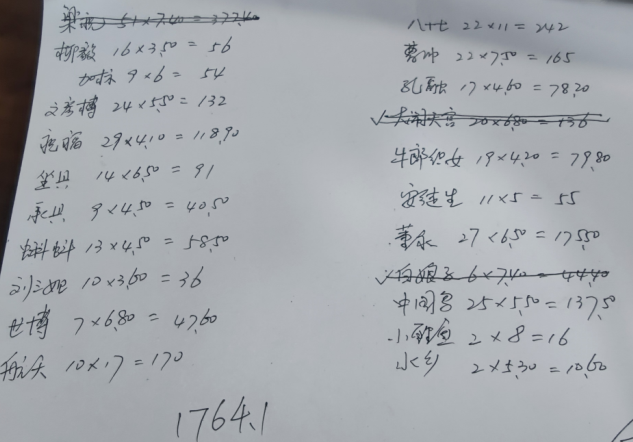 梁祝 51×7.40 = 377.40
柳毅 16×3.50 = 56
加标 9×6 = 54
文彦博 24×5.50 = 132
鹿腊 29×4.10 = 118.90
坐具 14×6.50 = 91
承具 9×4.50 = 40.50
蝌蚪 13×4.50 = 58.50
刘三姐 10×3.60 = 36
世博 7×6.80 = 47.60
航天 10×17 = 170
1764.1
八十七 22×11 = 242
曹冲 22×7.50 = 165
孔融 17×4.60 = 78.20
✓大闹天宫 20×6.80 = 136
牛郎织女 19×4.20 = 79.80
安徒生 11×5 = 55
董永 27×6.50 = 175.50
✓白娘子 6×7.40 = 44.40
中国鸟 25×5.50 = 137.50
小鲤鱼 2×8 = 16
水乡 2×5.30 = 10.60